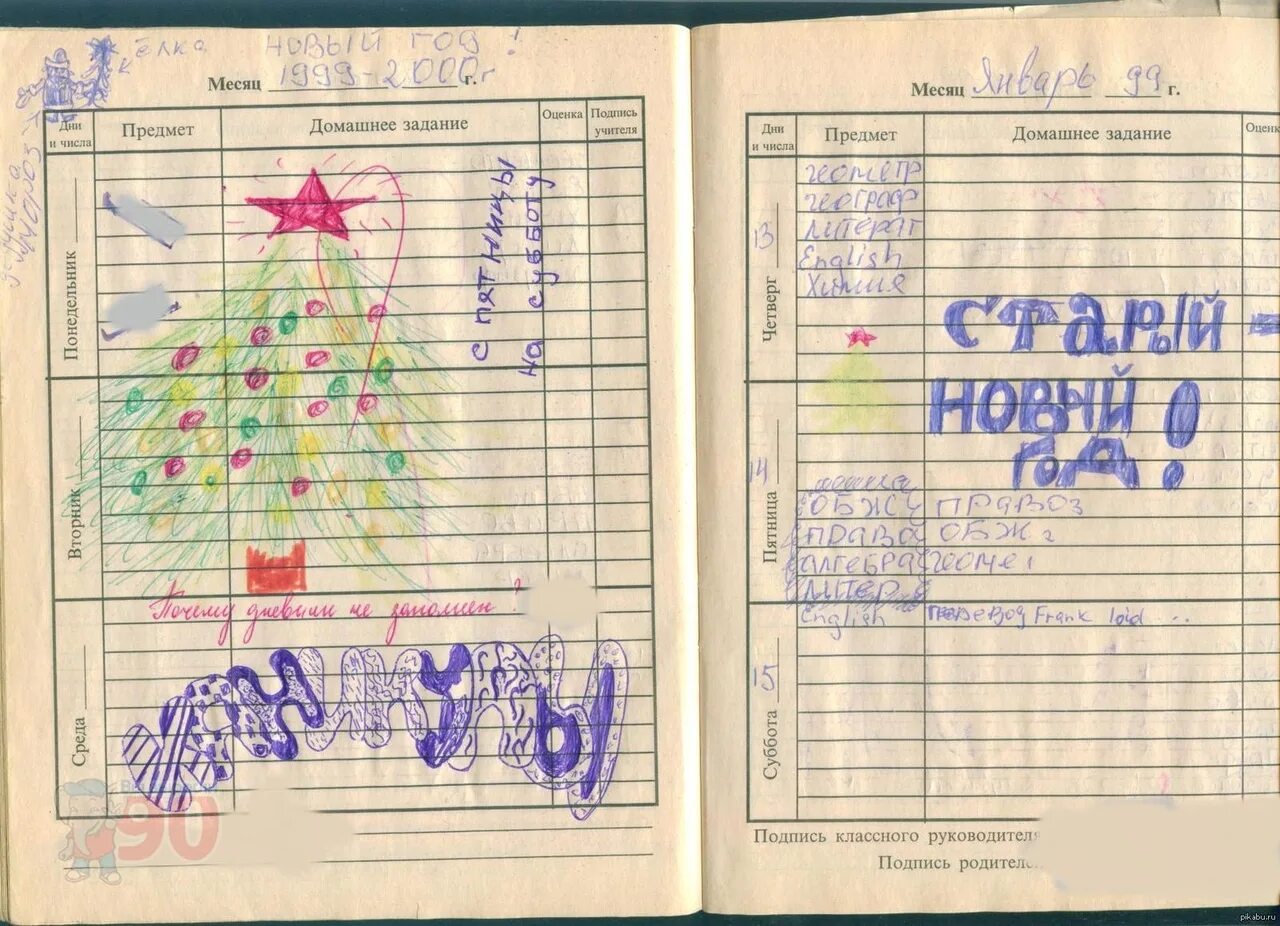 Ёлка
НОВЫЙ ГОД !
Месяц 1999-2000г г.
Дни и числа
Предмет
Домашнее задание
Оценка
Подпись учителя
Мороз
Понедельник
с пятницы
на субботу
Вторник
Почему дневник не заполнен?
Среда
КАНИКУЛЫ
90
Месяц Январь 99 г.
Дни и числа
Предмет
Домашнее задание
Оценк
13
Четверг
геометр
географ
литерат
English
Химия
СТАРЫЙ -
НОВЫЙ
ГОД !
14
Пятница
ОБЖ
ПРАВО
ПРАВО
ОБЖ
алгебра геоме
литер
15
Суббота
English перевод Frank loid ...
Подпись классного руководителя
Подпись родителе
pikabu.ru